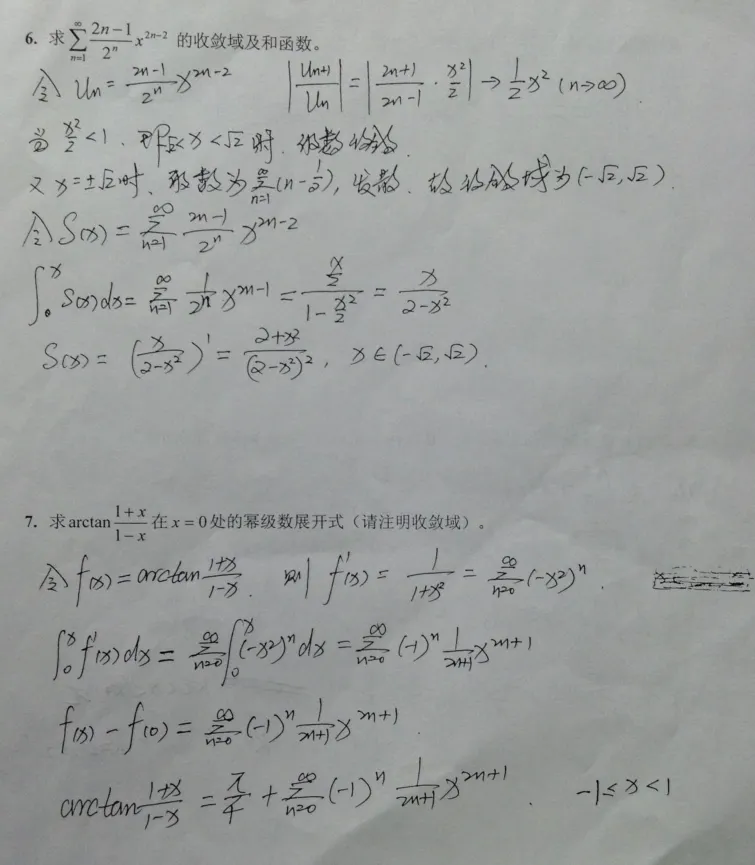 6. 求 $\sum_{n=1}^{\infty} \frac{2n-1}{2^n} x^{2n-2}$ 的收敛域及和函数。
令 $U_n = \frac{2n-1}{2^n} x^{2n-2}$ $\left|\frac{U_{n+1}}{U_n}\right| = \left|\frac{2n+1}{2n-1} \cdot \frac{x^2}{2}\right| \to \frac{1}{2}x^2 \ (n \to \infty)$
当 $\frac{x^2}{2} < 1$. 即 $-\sqrt{2} < x < \sqrt{2}$ 时. 级数收敛.
又 $x = \pm\sqrt{2}$ 时、级数为 $\sum_{n=1}^{\infty} (n - \frac{1}{2})$, 发散. 故收敛域为 $(-\sqrt{2}, \sqrt{2})$.
令 $S(x) = \sum_{n=1}^{\infty} \frac{2n-1}{2^n} x^{2n-2}$
$\int_0^x S(x)dx = \sum_{n=1}^{\infty} \frac{1}{2^n} x^{2n-1} = \frac{\frac{x}{2}}{1 - \frac{x^2}{2}} = \frac{x}{2-x^2}$
$S(x) = \left(\frac{x}{2-x^2}\right)' = \frac{2+x^2}{(2-x^2)^2}, \ x \in (-\sqrt{2}, \sqrt{2}).$
7. 求 $\arctan\frac{1+x}{1-x}$ 在 $x = 0$ 处的幂级数展开式（请注明收敛域）。
令 $f(x) = \arctan\frac{1+x}{1-x}$. 则 $f'(x) = \frac{1}{1+x^2} = \sum_{n=0}^{\infty} (-x^2)^n$.
$\int_0^x f'(x)dx = \sum_{n=0}^{\infty} \int_0^x (-x^2)^n dx = \sum_{n=0}^{\infty} (-1)^n \frac{1}{2n+1} x^{2n+1}$
$f(x) - f(0) = \sum_{n=0}^{\infty} (-1)^n \frac{1}{2n+1} x^{2n+1}$.
$\arctan\frac{1+x}{1-x} = \frac{\pi}{4} + \sum_{n=0}^{\infty} (-1)^n \frac{1}{2n+1} x^{2n+1}$. $-1 \le x < 1$